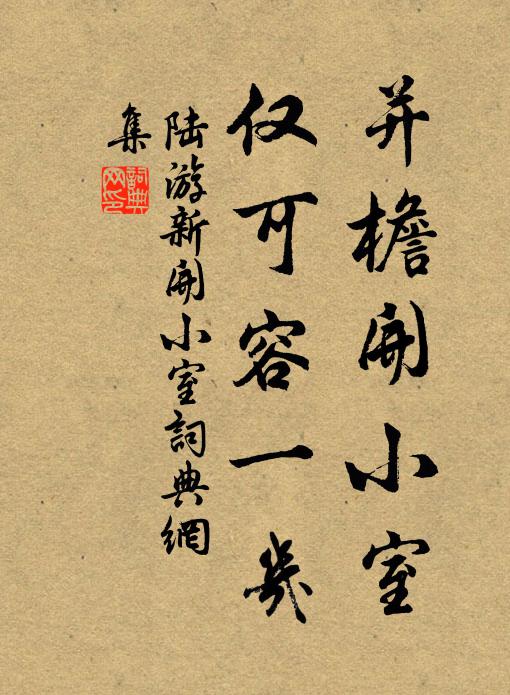 并檐開小室
仅可容一幾
陆游新開小室詞典網
集
詞典
网印